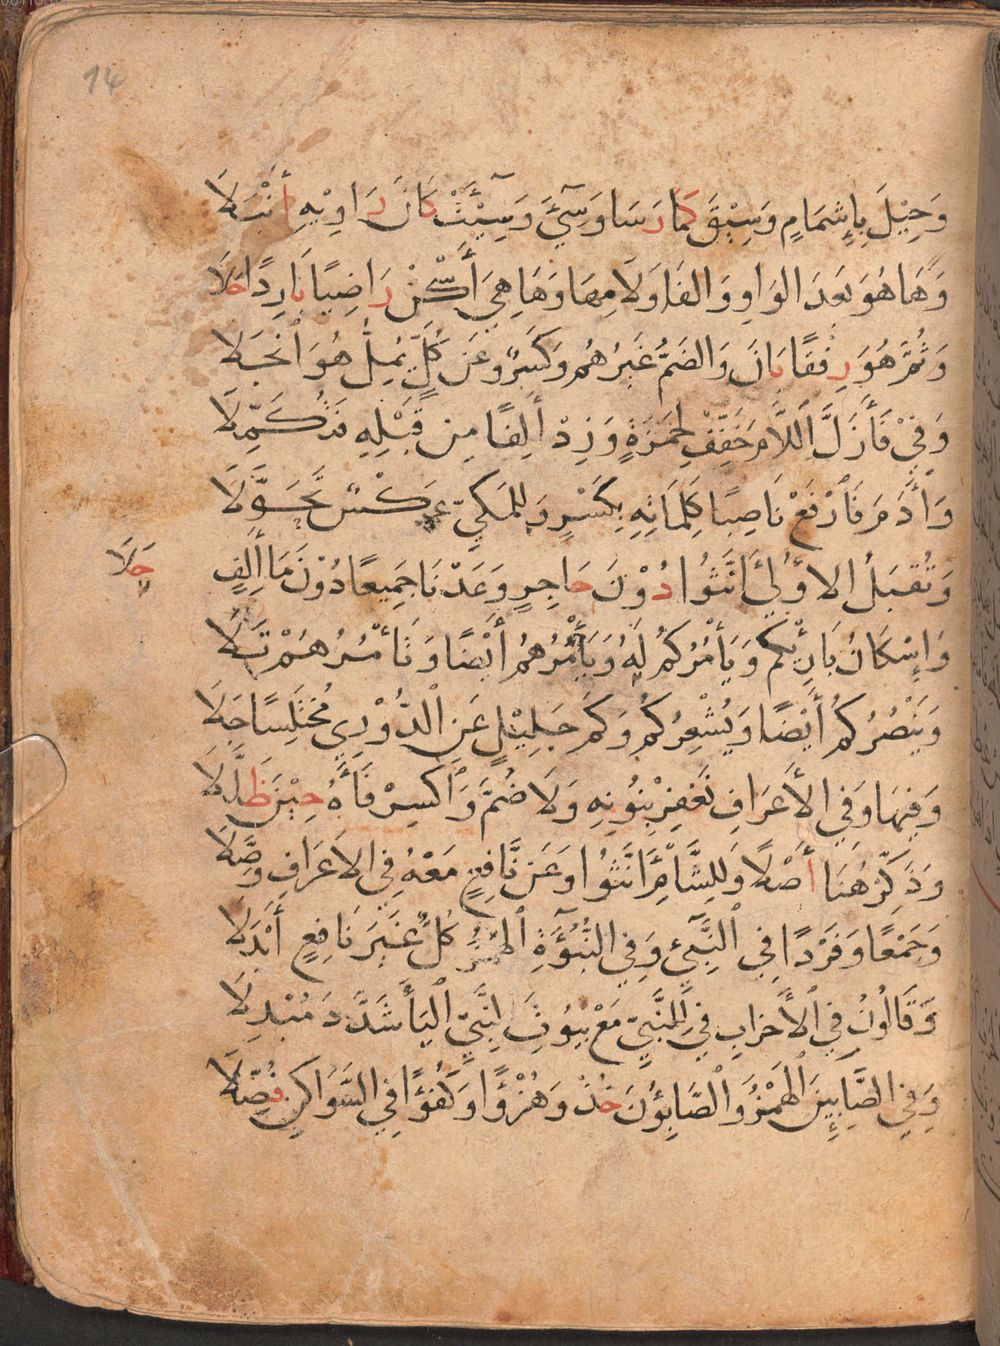 14
وَحِيْلَ بِإِشْمَامٍ وَسِيْقَ كَمَا رَسَا وَسِيْٓءَ وَسِيْٓئَتْ كَانَ رَاوِيْهِ أَنْبَلَا
وَهَا هُوَ بَعْدَ الوَاوِ وَالفَا وَلَامِهَا وَهَا هِيَ أَسْكِنْ رَاضِيًا بَارِدًا حَلَا
وَثُمَّ هُوَ رِفْقًا بَانَ وَالضَمُّ غَيْرُهُمْ وَكَسْرٌ وَعَن كُلٍّ يُمِلُّ هُوَ انْجَلَا
وَفِيْ فَأَزَلَّ اللَّامَ خَفِّفْ لِحَمْزَةٍ وَزِدْ أَلِفًا مِن قَبْلِهِ فَتُكَمِّلَا
وَأٰدَمَ فَارْفَعْ نَاصِبًا كَلِمَاتِهِ بِكَسْرٍ وَلِلمَكِّيِّ عَكْسٌ تَحَوَّلَا
وَتُقْبَلُ الاُوْلَىٰ أَنَّثُوا دُوْنَ حَاجِرٍ وَعَدْنَا جَمِيعًا دُوْنَ مَا أَلِفٍ
حَلَا
وَإِسْكَانُ بَارِئْكُم وَيَأْمُرْكُم لَهُ وَيَأْمُرُهُمُ أَيْضًا وَتَأْمُرُهُمْ تَلَا
وَيَنْصُرُكُمْ أَيْضًا وَيُشْعِرُكُمْ وَكَمْ جَلِيْلٍ عَنِ الدُّوْرِيِ مُخْتَلِسًا جَلَا
وَفِيْهَا وَفِي الأَعْرَافِ نَغْفِرْ بِنُونِهِ وَلَا ضُمَّ وَاكْسِرْ فَاءَهُ حِيْنَ ظَلَّلَا
وَذَكِّرْ هُنَا أَصْلًا وَلِلشَّامِ أَنَّثُوا وَعَن نَّافِعٍ مَعْهُ فِي الاَعْرَافِ وُصِّلَا
وَجَمْعًا وَفَرْدًا فِي النَّبِيْءِ وَفِي النُّبُوْٓءَةِ الهَمْزَ كُلٌّ غَيْرَ نَافِعٍ أَبْدَلَا
وَقَالُونُ فِي الأَحْزَابِ فِي لِلنَّبِيِّ مَعْ بُيُوْتَ النَّبِيِّ اليَاءَ شَدَّدَ مُبْدِلَا
وَفِي الصَّابِئِيْنَ الْهَمْزُ وَالصَّابِئُوْنَ خُذْ وَهُزْؤًا وَكُفْؤًا فِي السَّوَاكِنِ فُصِّلَا